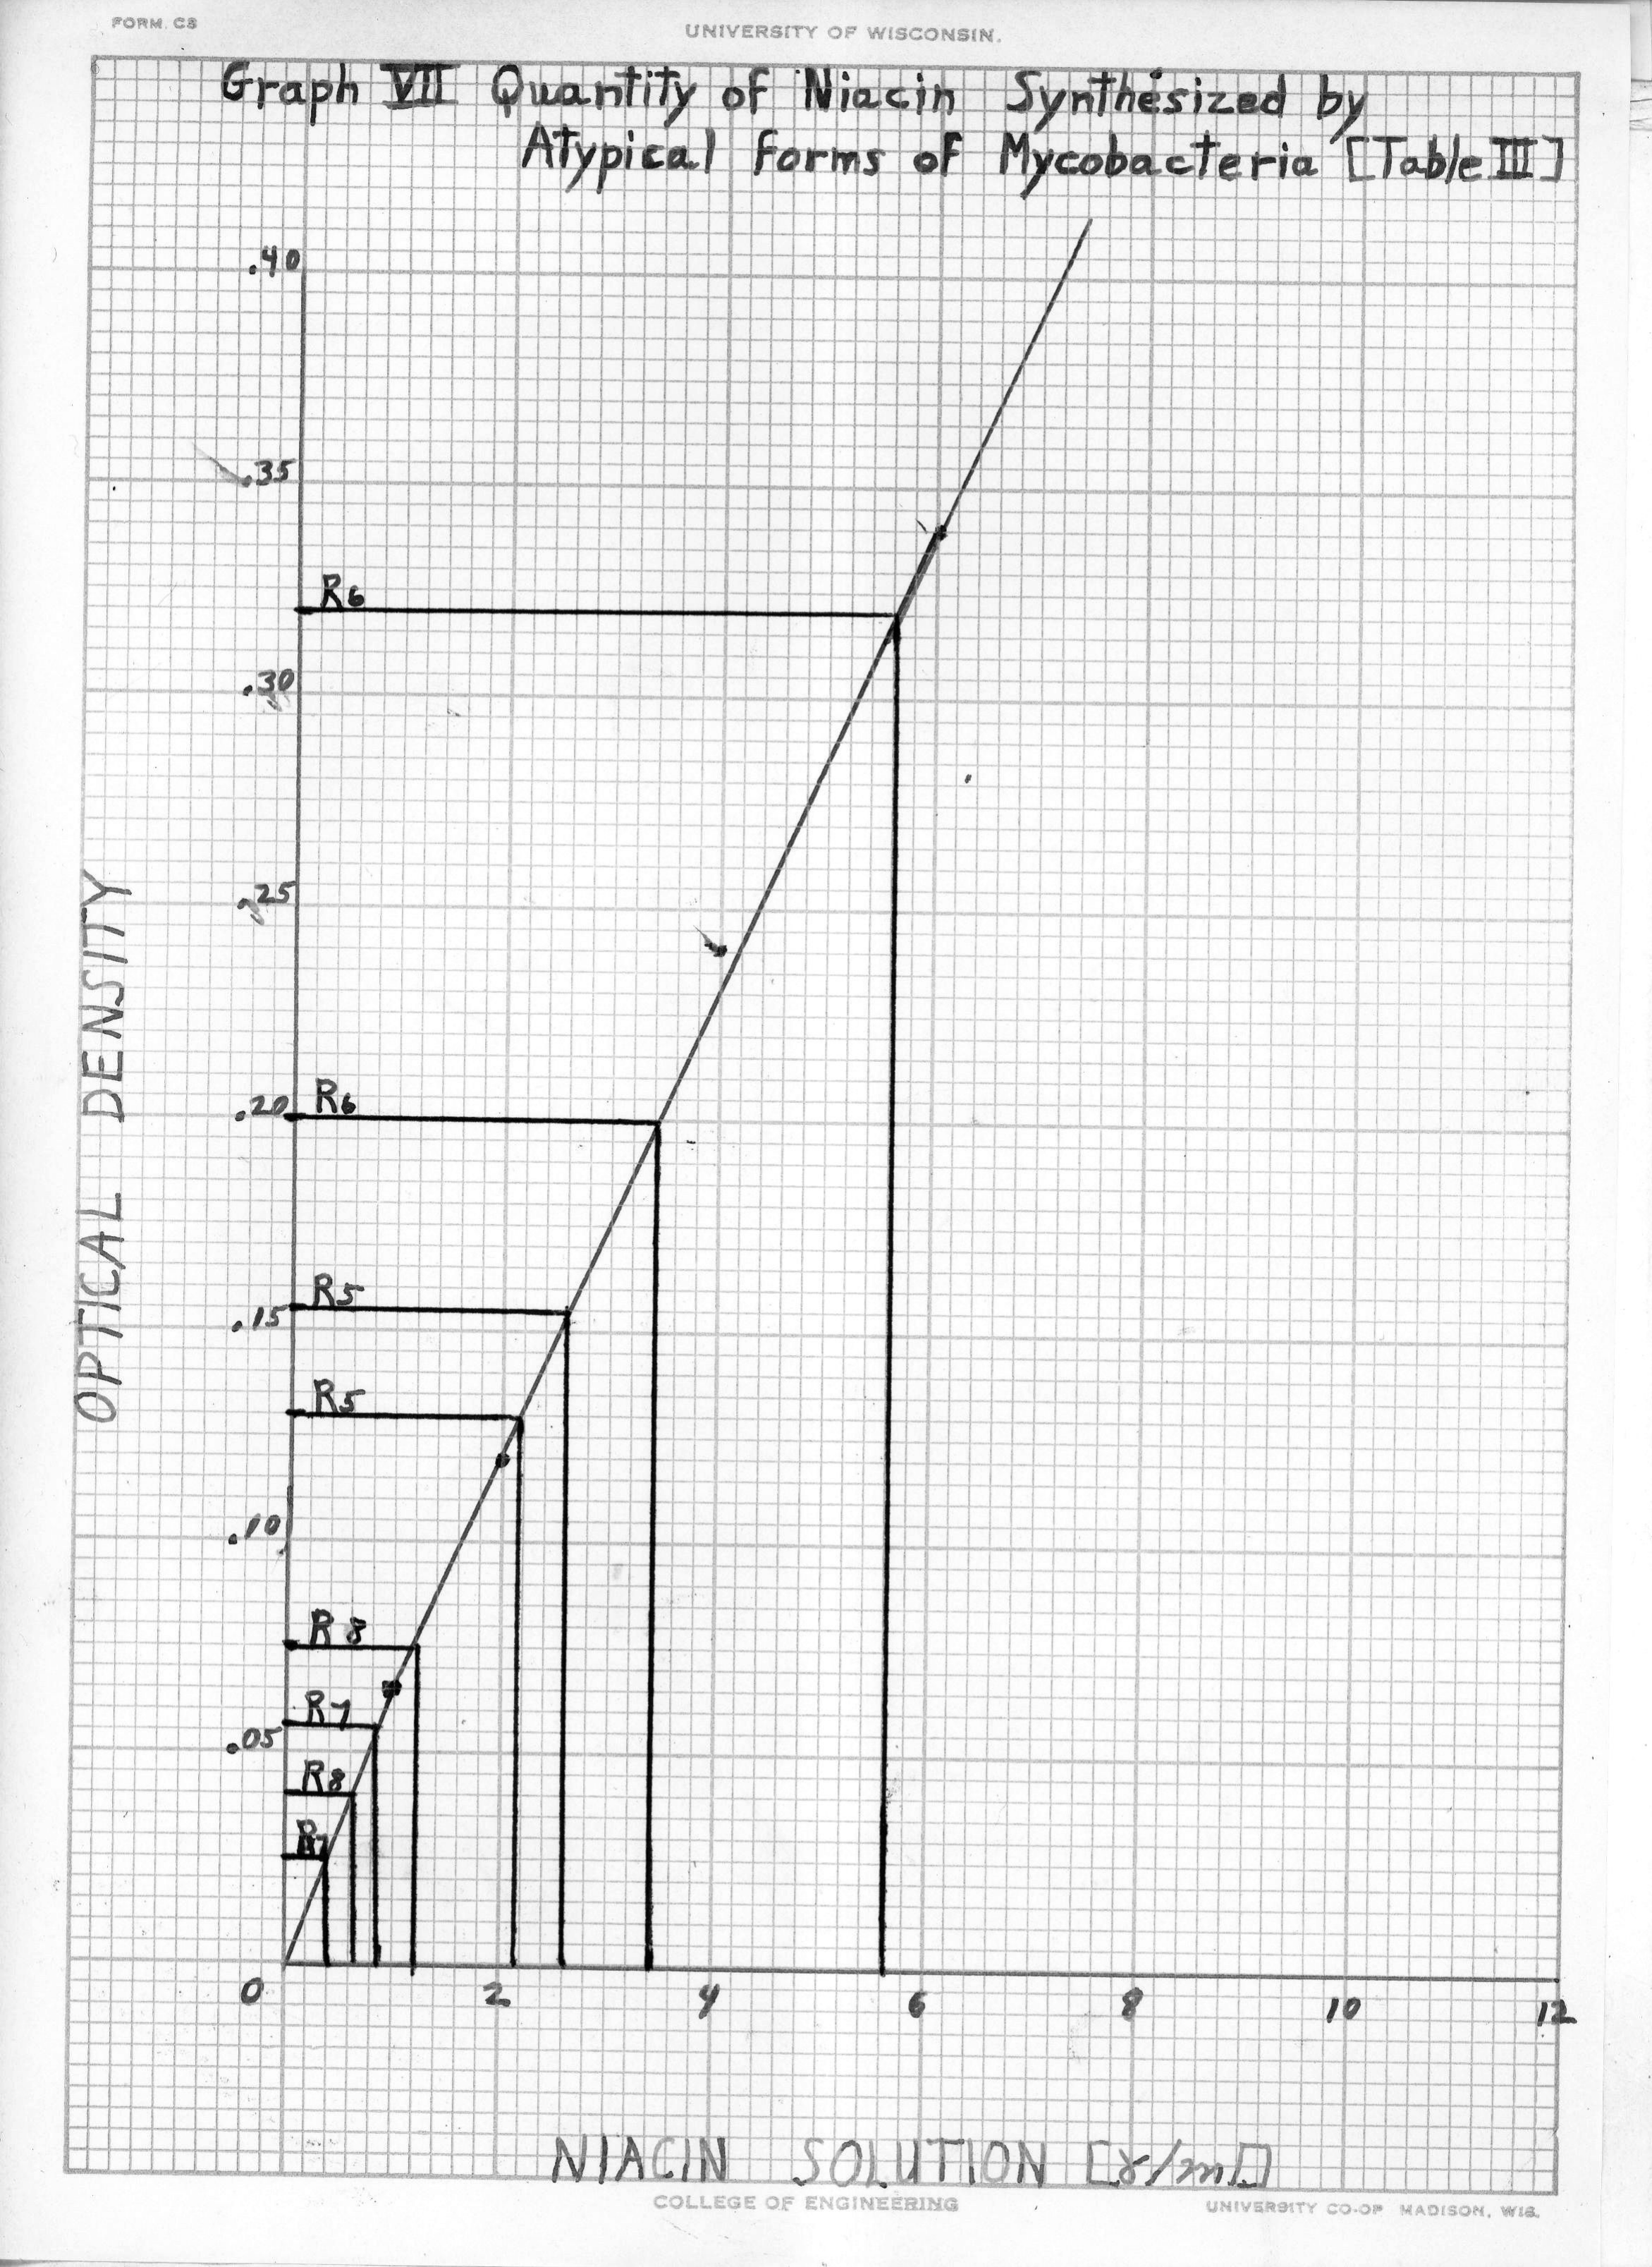 FORM. C3
UNIVERSITY OF WISCONSIN.
Graph VII Quantity of Niacin Synthesized by
Atypical forms of Mycobacteria [Table III]
.40
.35
R6
.30
.25
.20 R6
R5
.15
R5
.10
R8
R7
.05
R8
R7
0 2 4 6 8 10 12
OPTICAL DENSITY
NIACIN SOLUTION [γ/ml]
COLLEGE OF ENGINEERING
UNIVERSITY CO-OP MADISON, WIS.